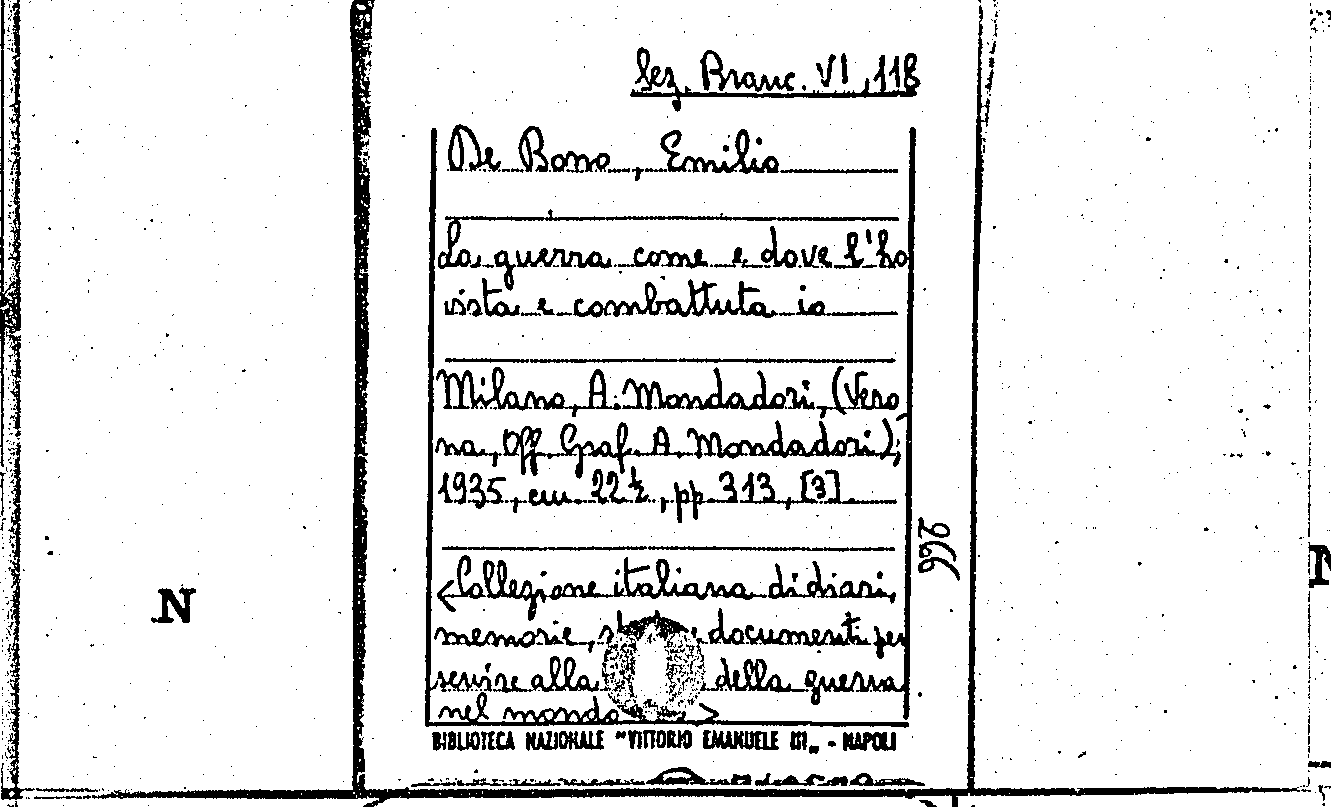 Sez. Branc. VI, 118
De Bono, Emilio
La guerra come e dove l'ho
vista e combattuta io
Milano, A. Mondadori, (Vero
na, Off. Graf. A. Mondadori),
1935, cm 22½, pp 313, [3].
266
N
<Collezione italiana di diari,
memorie, documenti per
servire alla della guerra
nel mondo >
BIBLIOTECA NAZIONALE "VITTORIO EMANUELE III" - NAPOLI